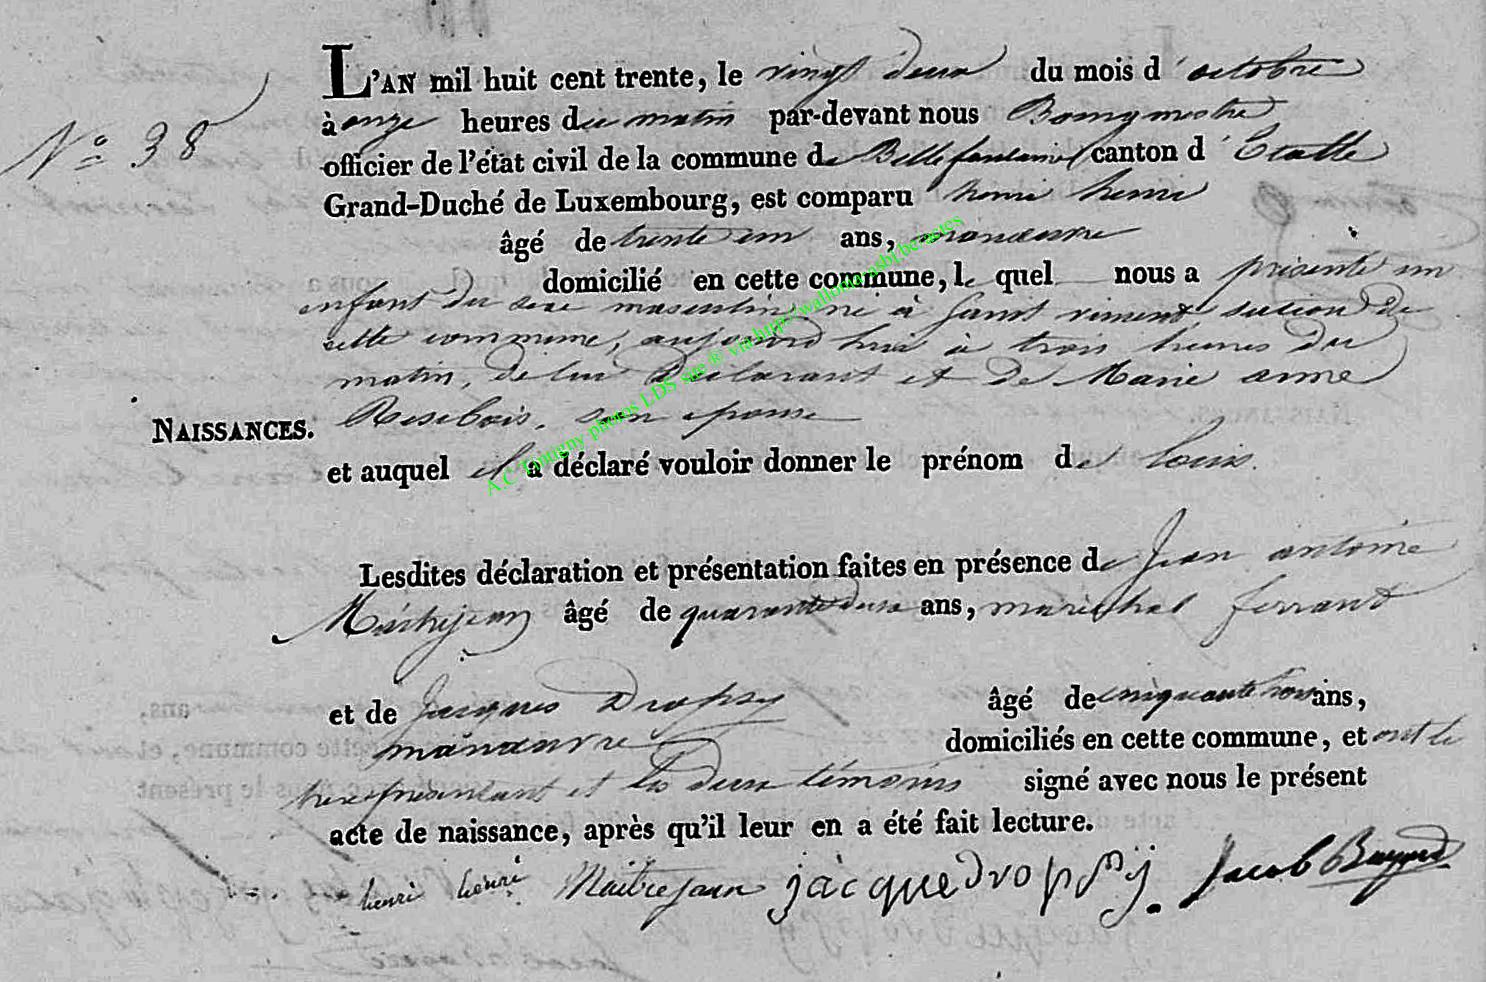 L'AN mil huit cent trente, le vingt deux du mois d'octobre
N° 38
à onze heures du matin par-devant nous Bourgmestre
officier de l'état civil de la commune de Bellefontaine canton d'Etalle
Grand-Duché de Luxembourg, est comparu henri henri
âgé de trente un ans, manœuvre
domicilié en cette commune, le quel nous a présenté un
enfant du sexe masculin né à Saint vincent section de
cette commune, aujourd'hui à trois heures du
matin, de lui déclarant et de Marie anne
NAISSANCES.
Resibois, son epouse
et auquel il a déclaré vouloir donner le prénom de louis.
A.C. Tintigny photos LDS site ® via http://wallonia.asbl.be/actes
Lesdites déclaration et présentation faites en présence de Jean antoine
âgé de quarante deux ans, maréchal ferrant
et de Jacques Dropsy âgé de cinquante trois ans,
manœuvre domiciliés en cette commune, et ont le
et les deux témoins signé avec nous le présent
acte de naissance, après qu'il leur en a été fait lecture.
henri henri Maitrejean jàcque dropsij. Jacob